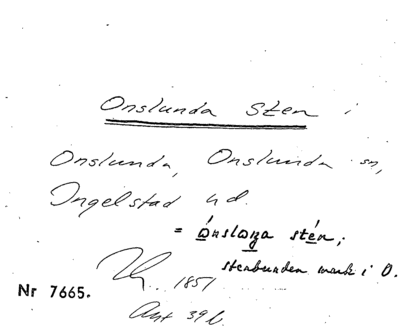 Onslunda Sten i
Onslunda, Onslunda sn,
Ingelstad hd.
= ónslɷn̥a stén;
stenbunden mark i O.
1851
Nr 7665.
Ant 39 b.